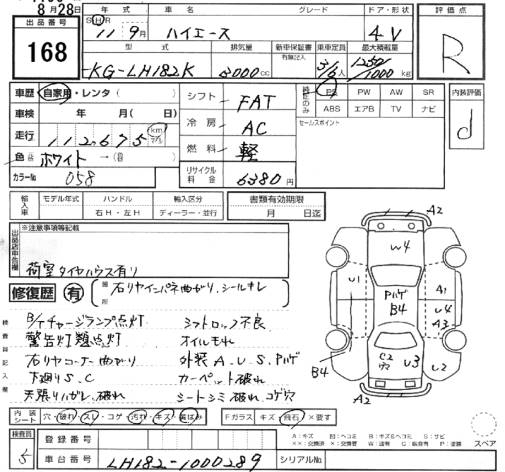 8月28日
出品番号
168
年式 グレード ドア・形状
S H R 11年9月 ハイエース 4V
型式 排気量 新車保証書 乗車定員 最大積載量
有無記入
KG-LH182K 3000cc 3/6人 1250/1000kg
評価点
R
車歴 自家用・レンタ( )
車検 年 月( 日)
走行 112675 km マイル
色 ホワイト →( )
カラーNo 058
シフト FAT
冷房 AC
燃料 軽
リサイクル料金 6380円
PS PW AW SR
ABS エアB TV ナビ
セールスポイント
内装評価
d
輸入車 モデル年式 ハンドル 輸入区分 書類有効期限
年 右H・左H ディーラー・並行 月 日迄
出品店申告欄
※注意事項等記載
荷室タイヤハウス有り
修復歴 有 箇所 右リヤインパネ曲がり、シールキレ
検査員記入欄
B/Tチャージランプ点灯 シフトロック不良
警告灯類点灯 オイルモレ
右リヤコーナー曲がり 外装A.U.S.Pハゲ
下廻りS.C カーペット破れ
天張りハガレ、破れ シートシミ破れ、コゲ穴
A2
U4
U1 Pハゲ B4 A1
U4
A3
C2 穴 U3
B4 U2
A2
内装シート 穴・破れ・スレ・コゲ・汚れ・キズ・黄ばみ Fガラス キズ 飛石 ×要す
A:キズ U:凹 B:凹キズ W:波 S:サビ
スペア
検査員 5
登録番号
車台番号 LH182-1000289 シリアルNo.